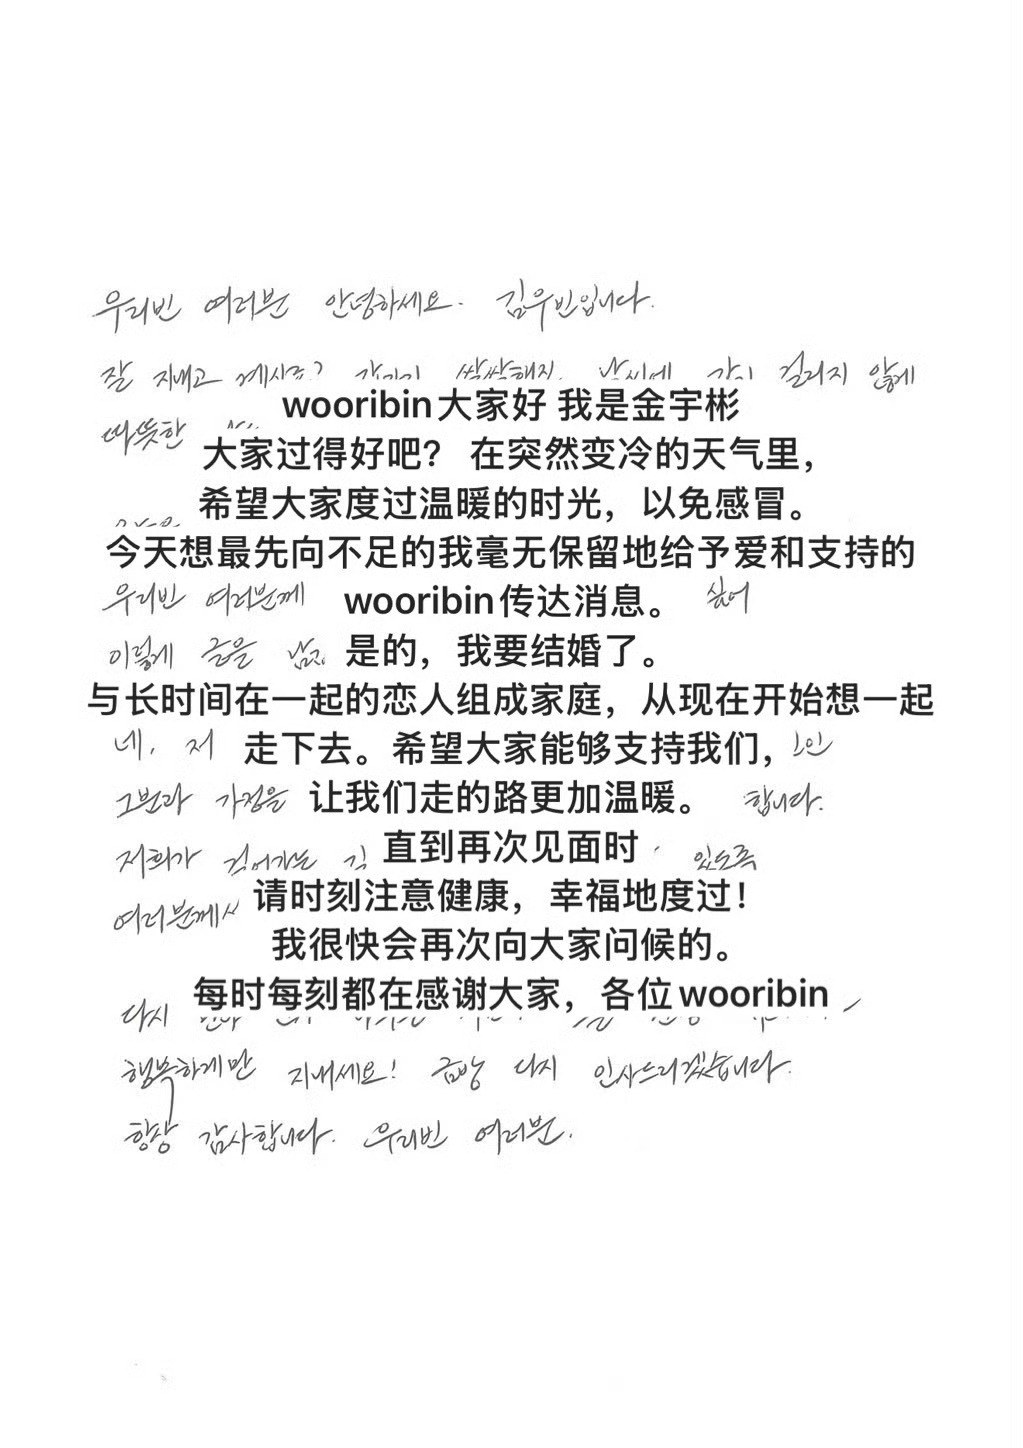 우리빈 여러분 안녕하세요. 김우빈입니다.
잘 지내고 계시죠? 갑자기 쌀쌀해진 날씨에 감기 걸리지 않게
wooribin大家好 我是金宇彬
따뜻한
大家过得好吧? 在突然变冷的天气里,
希望大家度过温暖的时光，以免感冒。
今天想最先向不足的我毫无保留地给予爱和支持的
우리빈 여러분께 wooribin传达消息。 싶어
이렇게 글을 是的，我要结婚了。
与长时间在一起的恋人组成家庭，从现在开始想一起
네, 저 走下去。希望大家能够支持我们,
그분과 가정을 让我们走的路更加温暖。 합니다.
저희가 걸어가는 直到再次见面时 있도록
여러분께서 请时刻注意健康，幸福地度过!
我很快会再次向大家问候的。
每时每刻都在感谢大家，各位wooribin
다시
행복하게만 지내세요! 금방 다시 인사드리겠습니다.
항상 감사합니다. 우리빈 여러분.